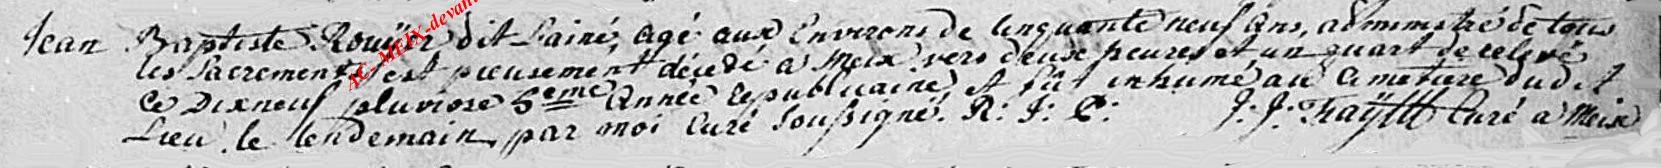 Jean Baptiste Rouÿer dit Lainé, agé aux Environs de Cinquante neuf ans, administré de tous
les Sacrements est pieusement décedé a Meix vers deux heures et un quart de relevé
ce Dixneuf pluviose 5eme année republicaine, et fût inhumé au Cimetiere dudit
Lieu le lendemain par moi Curé Soussigné. R: J: P: J: J: Curé a Meix
AC-MEIX-devant